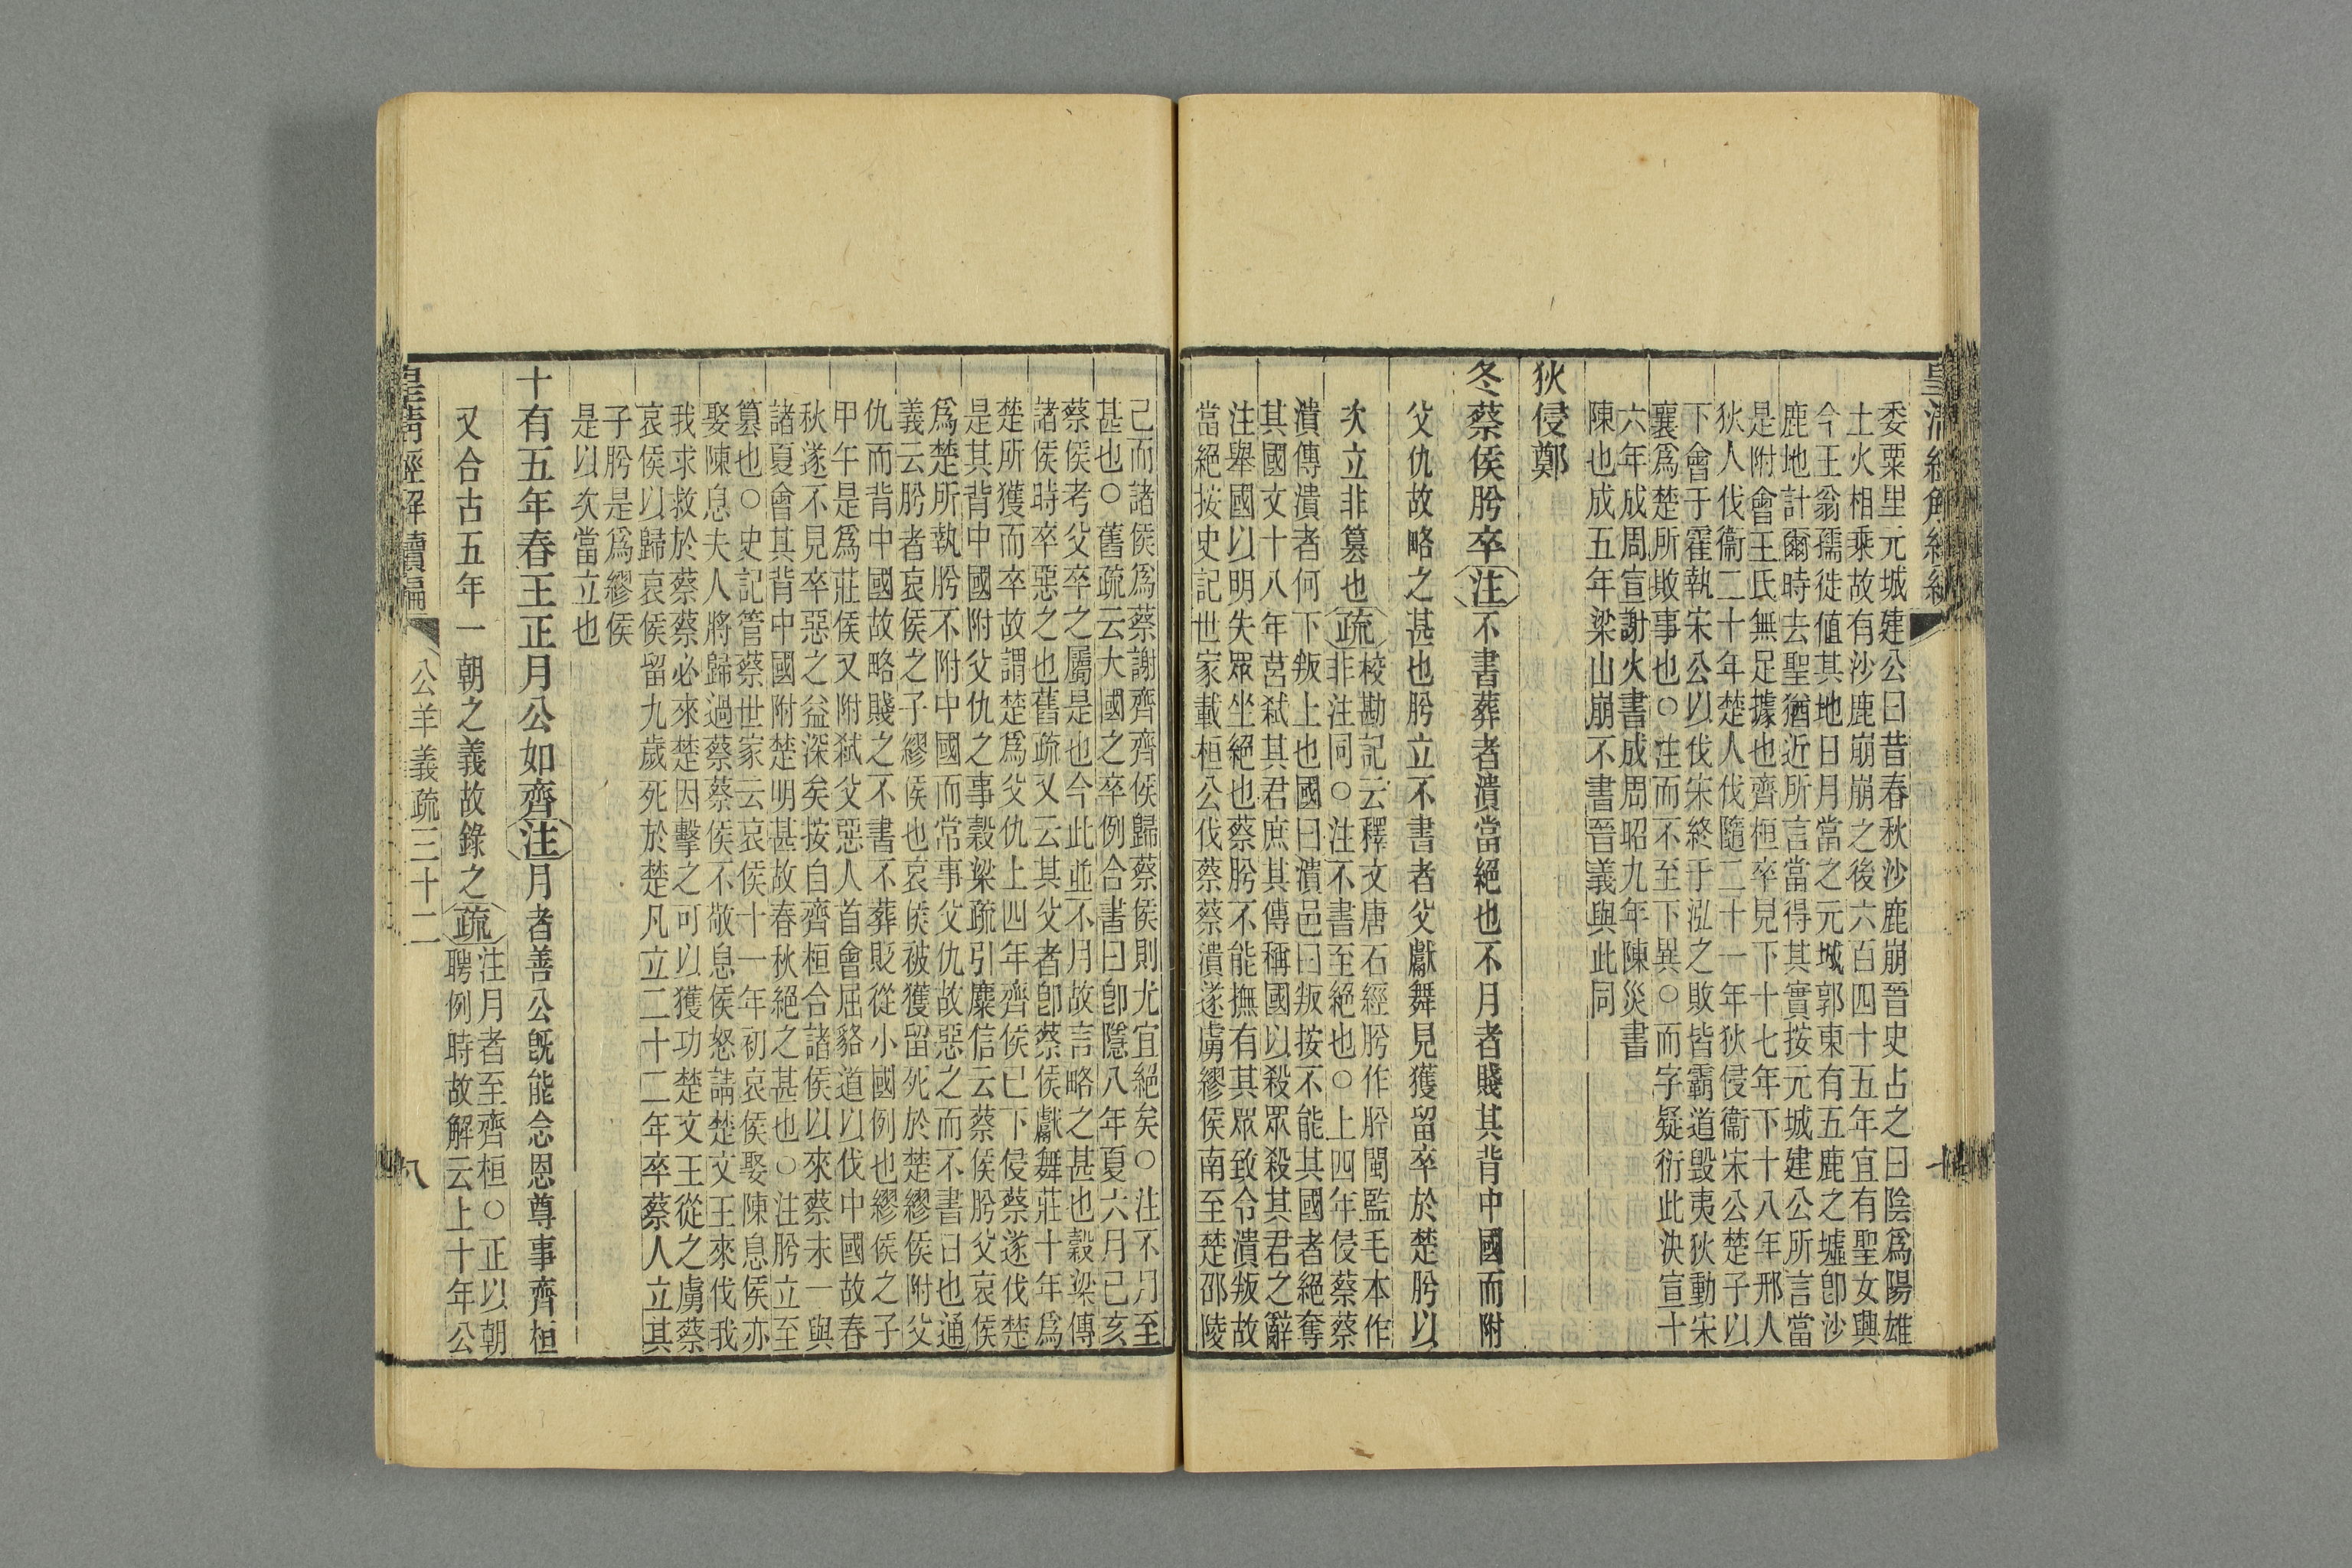 皇清經解續編
委粟里元城建公曰昔春秋沙鹿崩晉史占之曰陰爲陽雄
土火相乘故有沙鹿崩崩之後六百四十五年宜有聖女興
今王翁孺徙值其地日月當之元城郭東有五鹿之墟卽沙
鹿地計爾時去聖猶近所言當得其實按元城建公所言當
是附會王氏無足據也齊桓卒見下十七年下十八年邢人
狄人伐衞二十年楚人伐隨二十一年狄侵衞宋公楚子以
下會于霍執宋公以伐宋終于泓之敗皆霸道毀夷狄動宋
襄爲楚所敗事也○注而不至下異○而字疑衍此決宣十
六年成周宣謝火書成周昭九年陳災書
陳也成五年梁山崩不書晉義與此同
狄侵鄭
冬蔡侯肹卒注不書葬者潰當絕也不月者賤其背中國而附
父仇故略之甚也肹立不書者父獻舞見獲留卒於楚肹以
次立非篡也疏
校勘記云釋文唐石經肹作肸閩監毛本作
非注同○注不書至絕也○上四年侵蔡蔡
潰傳潰者何下叛上也國曰潰邑曰叛按不能其國者絕奪
其國文十八年莒弒其君庶其傳稱國以殺眾殺其君之辭
注舉國以明失眾坐絕也蔡肹不能撫有其眾致令潰叛故
當絕按史記世家載桓公伐蔡蔡潰遂虜繆侯南至楚邵陵
已而諸侯爲蔡謝齊齊侯歸蔡侯則尤宜絕矣○注不月至
甚也○舊疏云大國之卒例合書日卽隱八年夏六月己亥
蔡侯考父卒之屬是也今此並不月故言略之甚也穀梁傳
諸侯時卒惡之也舊疏又云其父者卽蔡侯獻舞莊十年爲
楚所獲而卒故謂楚爲父仇上四年齊侯已下侵蔡遂伐楚
是其背中國附父仇之事穀梁疏引麋信云蔡侯肹父哀侯
爲楚所執肹不附中國而常事父仇故惡之而不書日也通
義云肹者哀侯之子繆侯也哀侯被獲留死於楚繆侯附父
仇而背中國故略賤之不書不葬貶從小國例也繆侯之子
甲午是爲莊侯又附弒父惡人首會屈貉道以伐中國故春
秋遂不見卒惡之益深矣按自齊桓合諸侯以來蔡未一與
諸夏會其背中國附楚明甚故春秋絕之甚也○注肹立至
篡也○史記管蔡世家云哀侯十一年初哀侯娶陳息侯亦
娶陳息夫人將歸過蔡蔡侯不敬息侯怒請楚文王來伐我
我求救於蔡蔡必來楚因擊之可以獲功楚文王從之虜蔡
哀侯以歸哀侯留九歲死於楚凡立二十二年卒蔡人立其
子肹是爲繆侯
是以次當立也
十有五年春王正月公如齊注月者善公旣能念恩尊事齊桓
又合古五年一朝之義故錄之疏
注月者至齊桓○正以朝
聘例時故解云上十年公
皇清經解續編
公羊義疏三十二
八